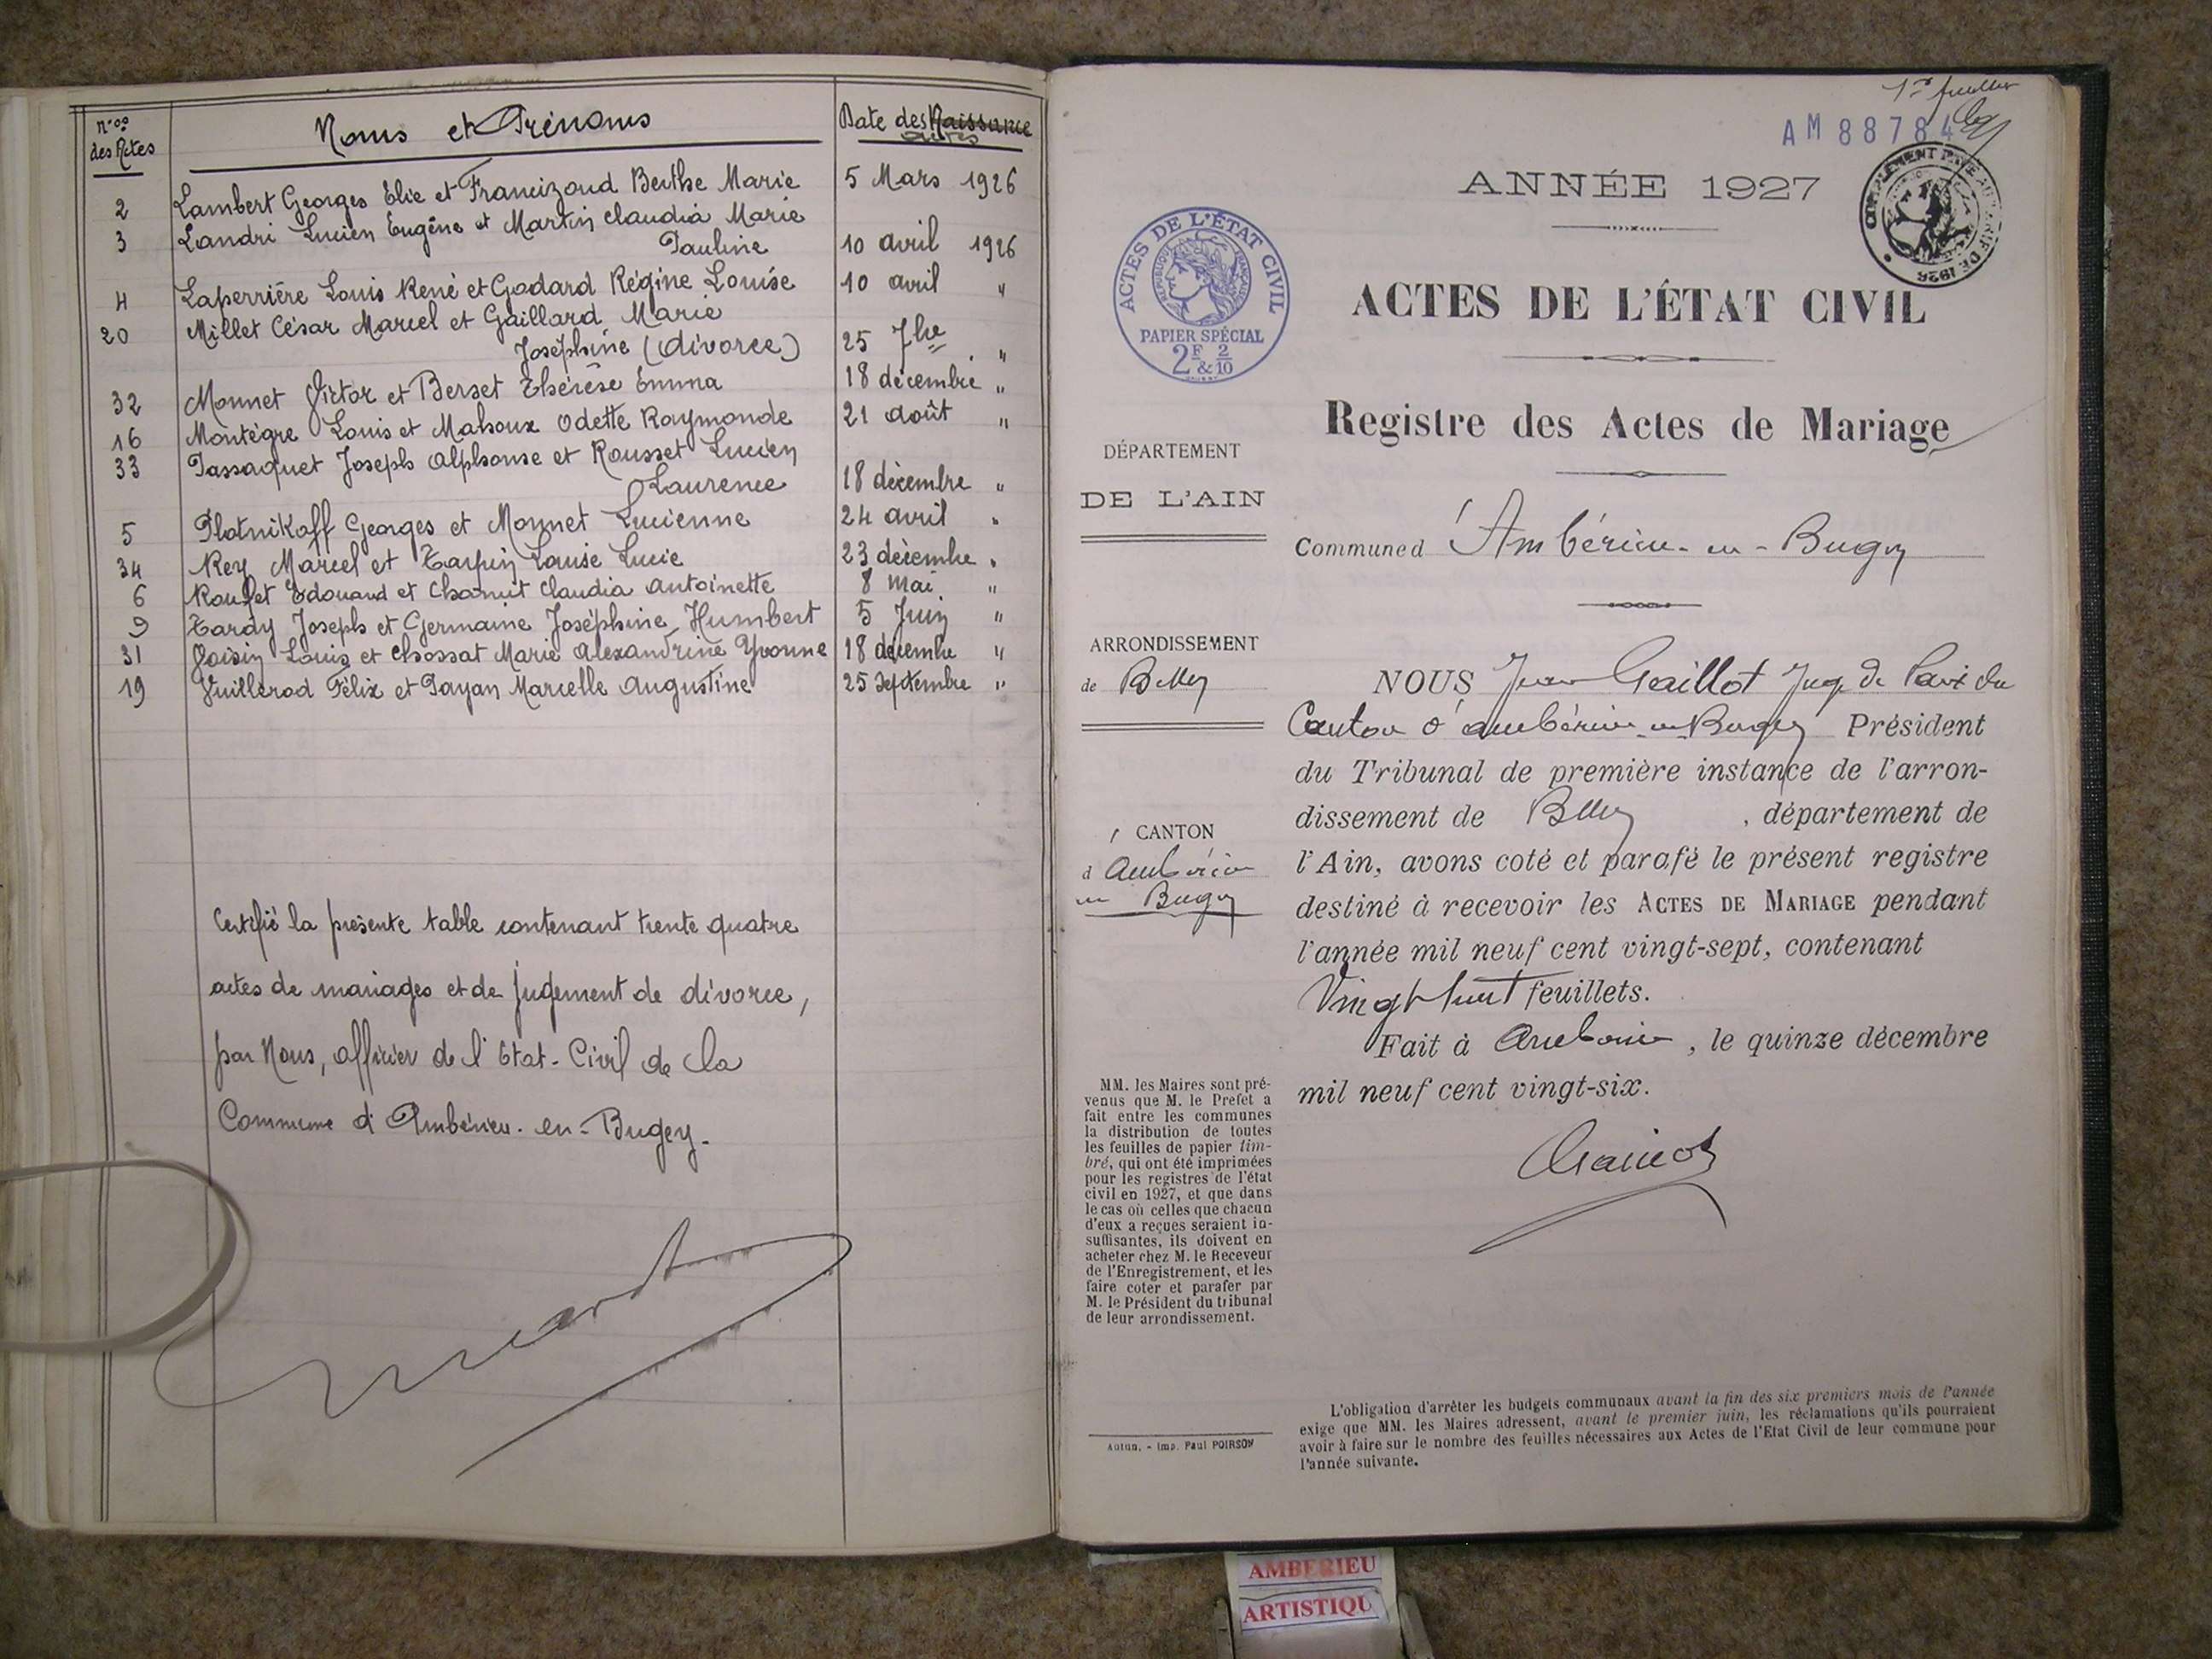 Nos des Actes
Noms et Prénoms
Date des Naissance actes
2 Lambert Georges Elie et Francizoud Berthe Marie 5 Mars 1926
3 Landri Lucien Eugène et Martin Claudia Marie
Pauline 10 avril 1926
4 Laperrière Louis René et Godard Régine Louise 10 avril "
20 Millet César Marcel et Gaillard Marie
Joséphine (divorce) 25 7bre "
32 Monnet Victor et Berset Thérèse Emma 18 décembre "
16 Montègre Louis et Mahoux Odette Raymonde 21 août "
33 Passaquet Joseph Alphonse et Rousset Lucien
Laurence 18 décembre "
5 Plotnikoff Georges et Monnet Lucienne 24 avril "
34 Rey Marcel et Tarpin Louise Lucie 23 décembre "
6 Edouard et Claudia Antoinette 8 mai "
9 Tardy Joseph et Germaine Joséphine Humbert 5 Juin "
31 Voisin Louis et Chossat Marie Alexandrine Yvonne 18 décembre "
19 Vuillerod Félix et Payan Marcelle Augustine 25 Septembre "
Certifié la présente table contenant trente quatre
actes de mariages et de jugement de divorce,
par Nous, officier de l'Etat-Civil de la
Commune d'Ambérieu-en-Bugey.
1er feuillet
AM 88784
COMPLEMENT PAYE AU TARIF DE 1926
ANNÉE 1927
ACTES DE L'ÉTAT CIVIL
REPUBLIQUE FRANÇAISE
PAPIER SPÉCIAL
2F & 2/10
ACTES DE L'ÉTAT CIVIL
Registre des Actes de Mariage
DÉPARTEMENT
DE L'AIN
Commune d'Ambérieu-en-Bugey
ARRONDISSEMENT
de Belley
CANTON
d'Ambérieu
en Bugey
NOUS Jean Gaillot Juge de Paix du
Canton d'Ambérieu-en-Bugey Président
du Tribunal de première instance de l'arron-
dissement de Belley, département de
l'Ain, avons coté et parafé le présent registre
destiné à recevoir les ACTES DE MARIAGE pendant
l'année mil neuf cent vingt-sept, contenant
Vingt huit feuillets.
Fait à Ambérieu, le quinze décembre
mil neuf cent vingt-six.
MM. les Maires sont pré-
venus que M. le Prefet a
fait entre les communes
la distribution de toutes
les feuilles de papier tim-
bré, qui ont été imprimées
pour les registres de l'état
civil en 1927, et que dans
le cas où celles que chacun
d'eux a reçues seraient in-
suffisantes, ils doivent en
acheter chez M. le Receveur
de l'Enregistrement, et les
faire coter et parafer par
M. le Président du tribunal
de leur arrondissement.
Autun. - Imp. Paul POIRSON
L'obligation d'arrêter les budgets communaux avant la fin des six premiers mois de l'année
exige que MM. les Maires adressent, avant le premier juin, les réclamations qu'ils pourraient
avoir à faire sur le nombre des feuilles nécessaires aux Actes de l'Etat Civil de leur commune pour
l'année suivante.
AMBERIEU
ARTISTIQU